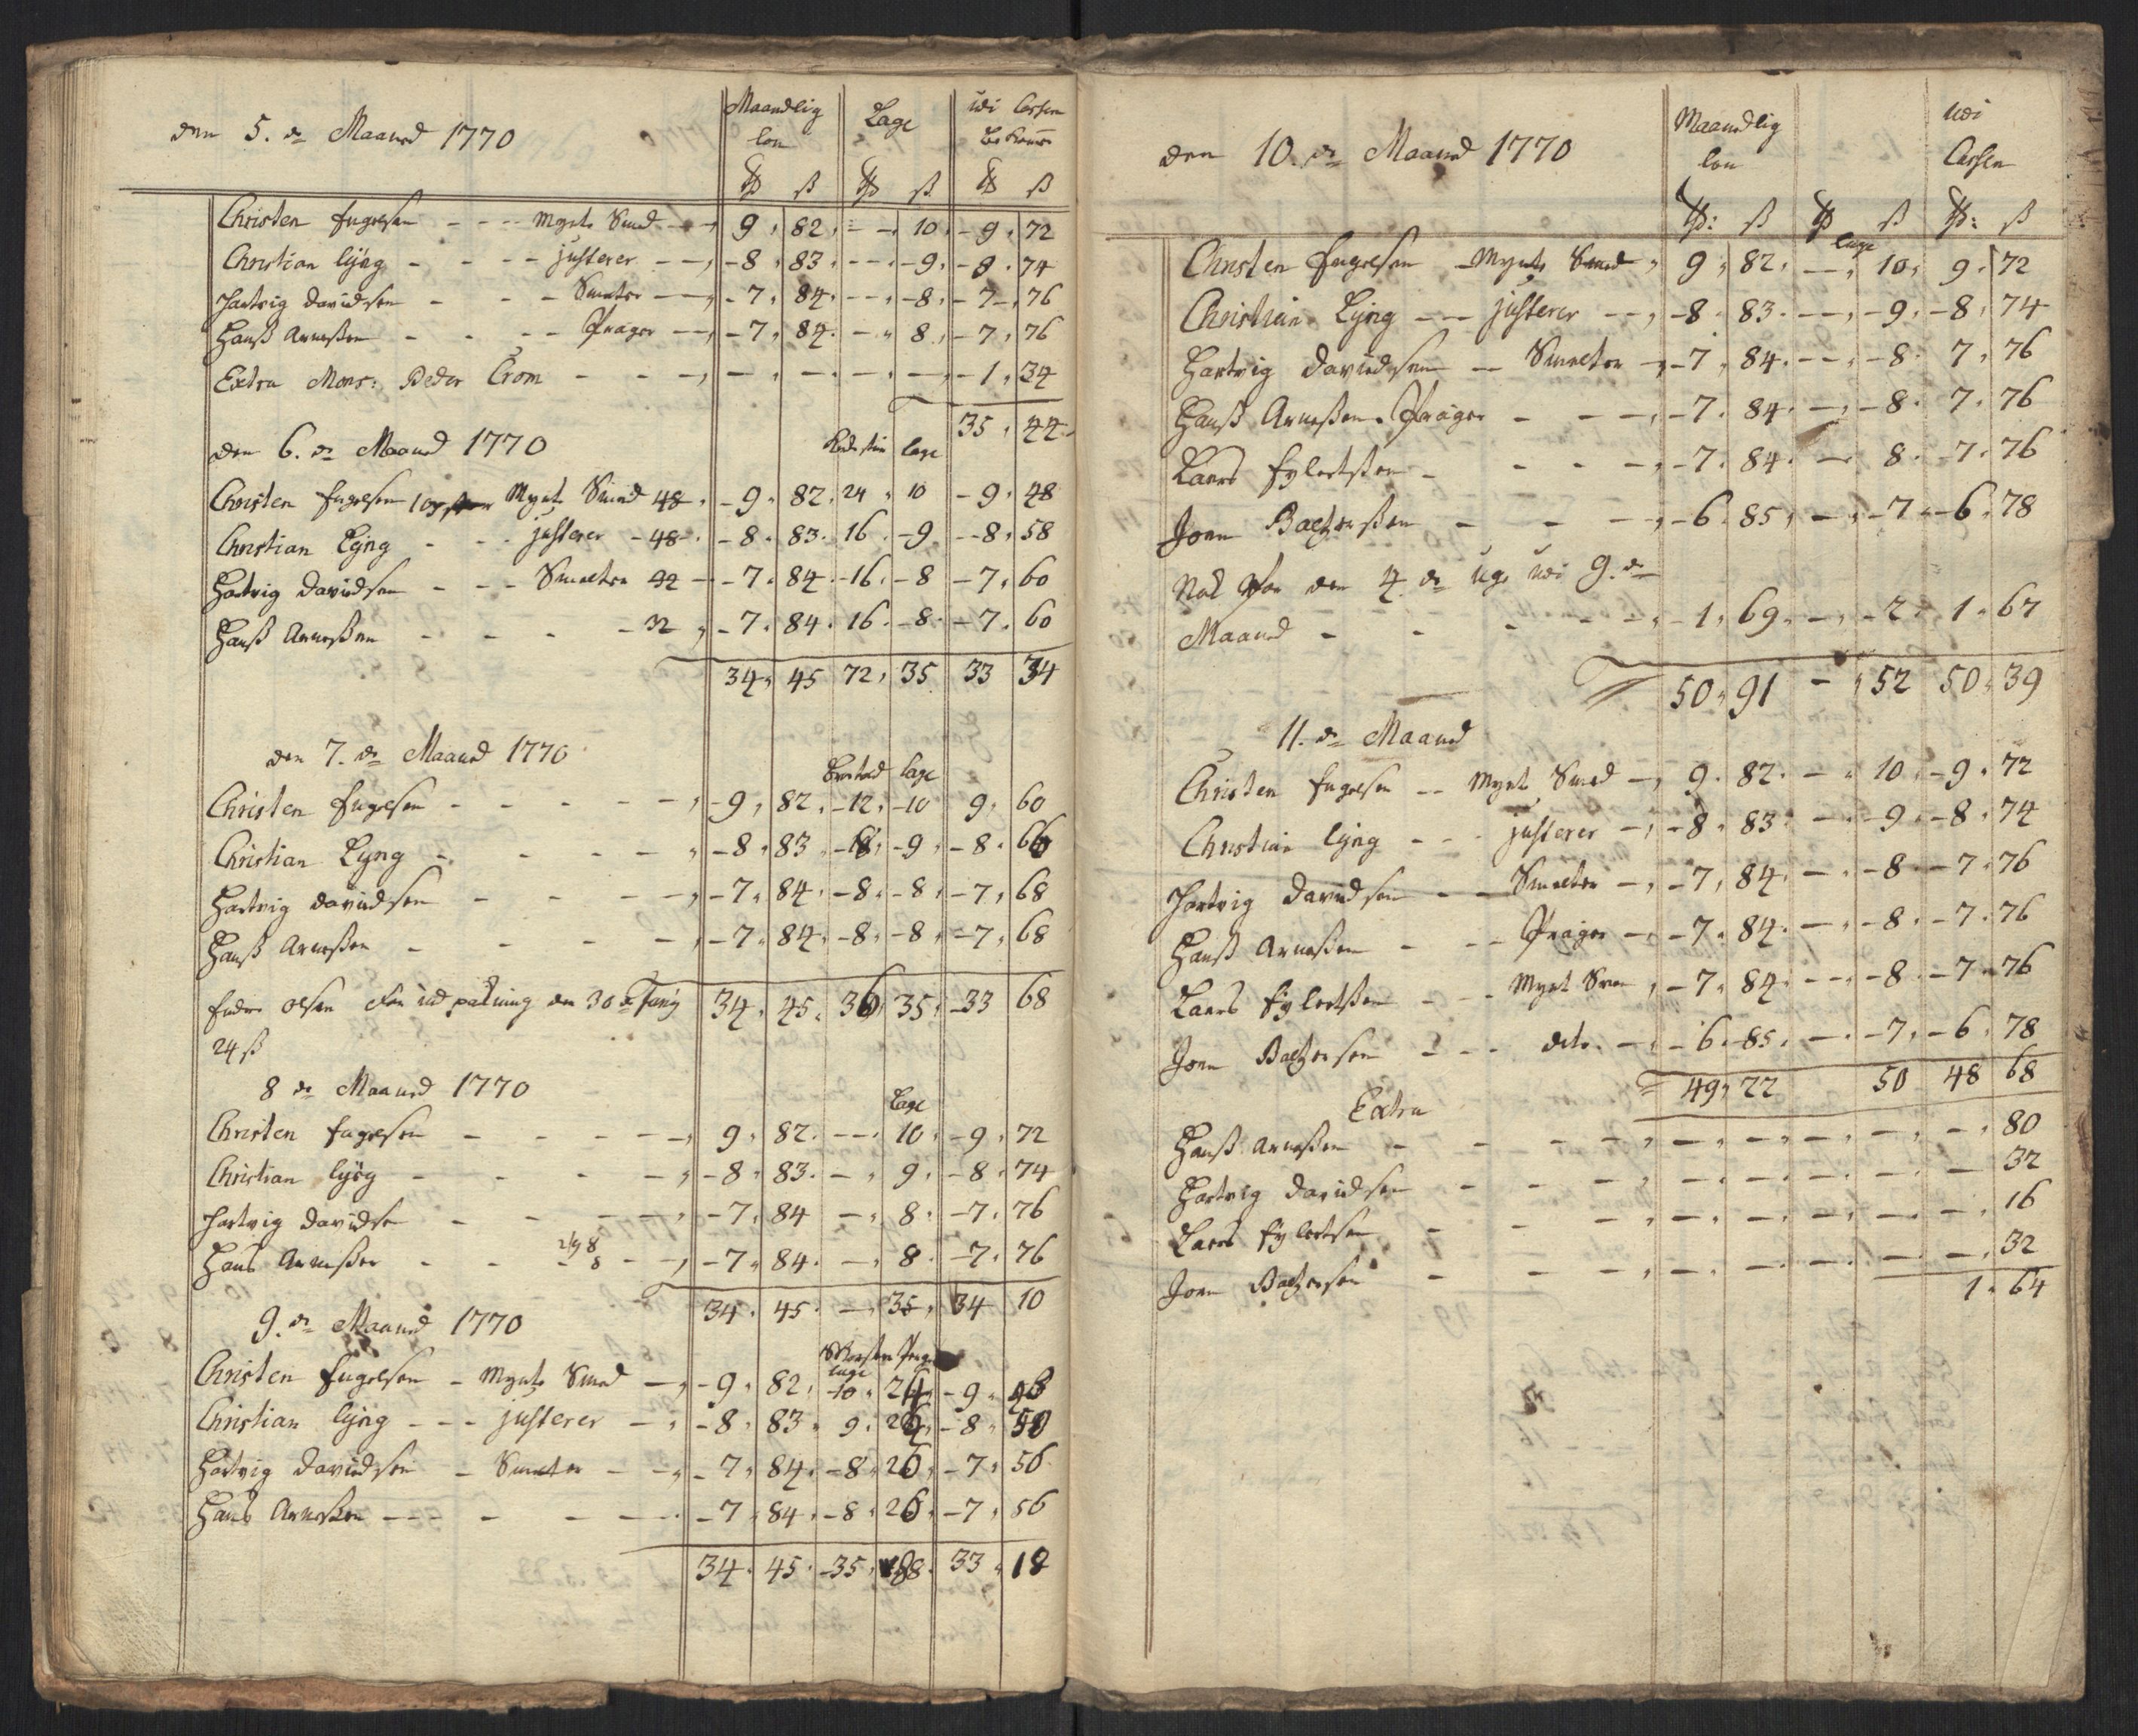 den 5. de Maaned 1770 Maandlig lön Lage udi Cassen
ß ß ß
Christen Engelsen - - - Mynt Smed - 9 82 - 10 - 9 72
Christian Lyng - - - justerer - 8 83 - 9 - 8 74
Hartvig Davidsen - - - Smelter - 7 84 - 8 - 7 76
Hanß Arneßen - - - Præger - 7 84 - 8 - 7 76
Extra Mons: Peder Crom - - - 1 34
35 44
den 6. de Maaned 1770 Lage
Christen Engelsen Mynt Smed 48 - 9 82 24 10 - 9 48
Christian Lyng - - justerer - 48 - 8 83 16 - 9 - 8 58
Hartvig Davidsen - - - Smelter 32 - 7 84 - 16 - 8 - 7 60
Hanß Arneßen - - - 32 - 7 84 16 - 8 - 7 60
34 45 72 35 33 34
den 7. de Maaned 1770
Lage
Christen Engelsen - - - 9 82 - 12 - 10 9 60
Christian Lyng - - - 8 83 - 8 - 9 - 8 66
Hartvig Davidsen - - - 7 84 - 8 - 8 - 7 68
Hanß Arneßen - - - 7 84 - 8 - 8 - 7 68
Olsen den 30 34 45 36 35 - 33 68
24 ß
8 de Maaned 1770
Lage
Christen Engelsen - - - 9 82 - 10 - 9 72
Christian Lyng - - - 8 83 - 9 - 8 74
Hartvig Davidse - - - 7 84 - 8 - 7 76
Hans Arneßen - - - 7 84 - 8 - 7 76
34 45 - 35 34 10
9. de Maaned 1770
Lage
Christen Engelsen - Mynt Smed - 9 82 - 10 24 - 9 48
Christian Lyng - - - justerer - 8 83 9 24 - 8 50
Hartvig Davidsen - Smelter - - 7 84 - 8 20 - 7 56
Hans Arneßen - - - 7 84 - 8 20 - 7 56
34 45 - 35 88 33 18
den 10. de Maaned 1770 Maandlig lön udi Cassen
ß ß ß
Lage
Christen Engelsen - Mynt Smed 9 82 - 10 9 72
Christian Lyng - - justerer - - 8 83 - 9 - 8 74
Hartvig Davidsen - Smelter - 7 84 - 8 7 76
Hanß Arneßen Præger - - - 7 84 - 8 7 76
Laers Eylertßen - - - 7 84 - 8 - 7 76
Joen Baltzerßen - - - 6 85 - 7 - 6 78
Nok for den 4. de uge udi 9. de
Maaned - - - 1 69 - 2 1 67
50 91 - 52 50 39
11. de Maaned
Christen Engelsen - - Mynt Smed - 9 82 - 10 - 9 72
Christian Lyng - - justerer - - 8 83 - 9 - 8 74
Hartvig Davidsen - - Smelter - - 7 84 - 8 - 7 76
Hanß Arneßen - - Præger - - 7 84 - 8 - 7 76
Laers Eylertßen - - Mynt - 7 84 - 8 - 7 76
Joen Baltzersen - - dito - - 6 85 - 7 - 6 78
49 22 50 48 68
Extra
Hanß Arneßen - - - 80
Hartvig Davidsen - - - 32
Laers Eylertsen - - - 16
Joen Baltzersen - - - 32
1 64